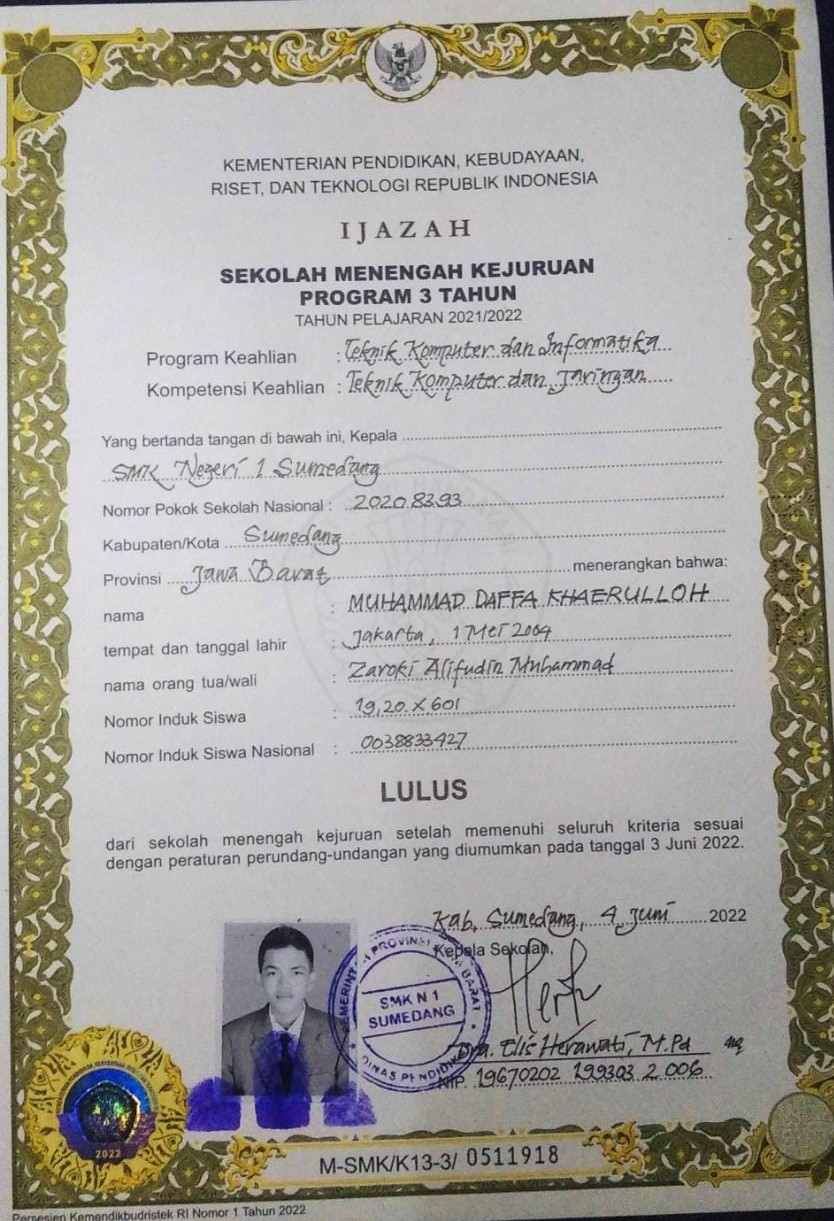 KEMENTERIAN PENDIDIKAN, KEBUDAYAAN,
RISET, DAN TEKNOLOGI REPUBLIK INDONESIA
IJAZAH
SEKOLAH MENENGAH KEJURUAN
PROGRAM 3 TAHUN
TAHUN PELAJARAN 2021/2022
Program Keahlian : Teknik Komputer dan Informatika
Kompetensi Keahlian : Teknik Komputer dan Jaringan
Yang bertanda tangan di bawah ini, Kepala
SMK Negeri 1 Sumedang
Nomor Pokok Sekolah Nasional : 20208393
Kabupaten/Kota Sumedang
Provinsi Jawa Barat menerangkan bahwa:
nama : MUHAMMAD DAFFA KHAERULLOH
tempat dan tanggal lahir : Jakarta, 1 Mei 2004
nama orang tua/wali : Zaroki Alifudin Muhammad
Nomor Induk Siswa : 19,20.X.601
Nomor Induk Siswa Nasional : 0038833427
LULUS
dari sekolah menengah kejuruan setelah memenuhi seluruh kriteria sesuai
dengan peraturan perundang-undangan yang diumumkan pada tanggal 3 Juni 2022.
Kab. Sumedang, 4 Juni 2022
Kepala Sekolah,
PEMERINTAH PROVINSI JAWA BARAT
SMK N 1
SUMEDANG
DINAS PENDIDIKAN
Dra. Elis Herawati, M.Pd
NIP. 19670202 199303 2 006
2022
M-SMK/K13-3/ 0511918
Persesjen Kemendikbudristek RI Nomor 1 Tahun 2022